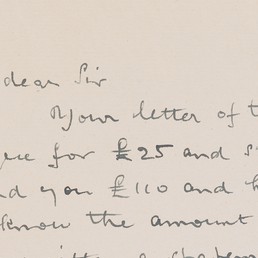 dear Sir
Your letter of t
que for £25 and s
nd you £110 and h
know the amount